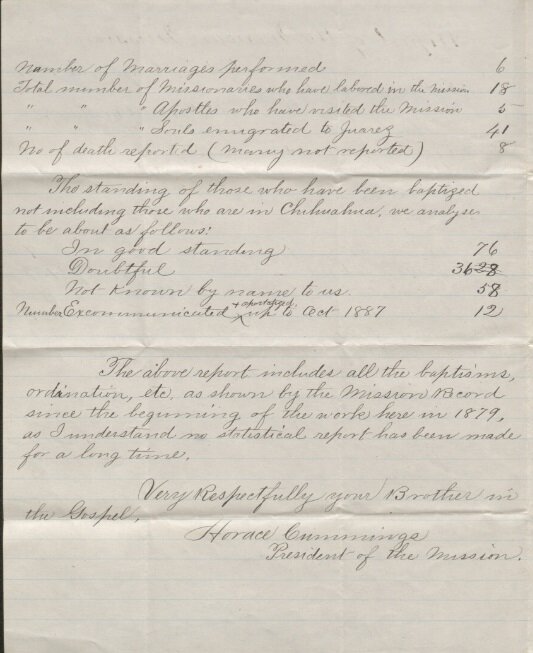 Number of Marriages performed 6
Total number of Missionaries who have labored in the Mission 18
" " " Apostles who have visited the Mission 5
" " " Souls emigrated to Juarez 41
No of death reportd (many not reported) 8
The standing of those who have been baptized
not including those who are in Chihuahua, we analyse
to be about as follows:
In good standing 76
Doubtful 36 28
Not known by name to us 58
Number Excommunicated + apostatized up to Oct 1887 12
The above report includes all the baptisms,
ordination, etc. as shown by the Mission Record
since the beginning of the work here in 1879,
as I understand no statistical report has been made
for a long time.
Very Respectfully your Brother in
the Gospel,
Horace Cummings
President of the Mission.